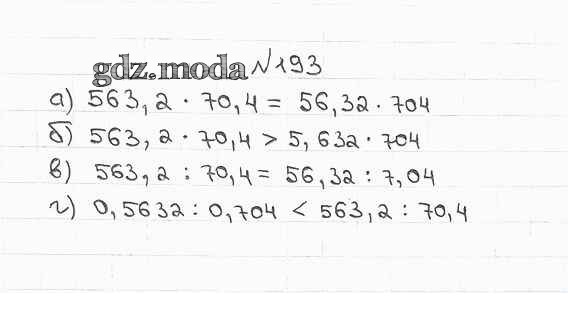 gdz.moda №193
а) 563,2 · 70,4 = 56,32 · 704
б) 563,2 · 70,4 > 5,632 · 704
в) 563,2 : 70,4 = 56,32 : 7,04
г) 0,5632 : 0,704 < 563,2 : 70,4